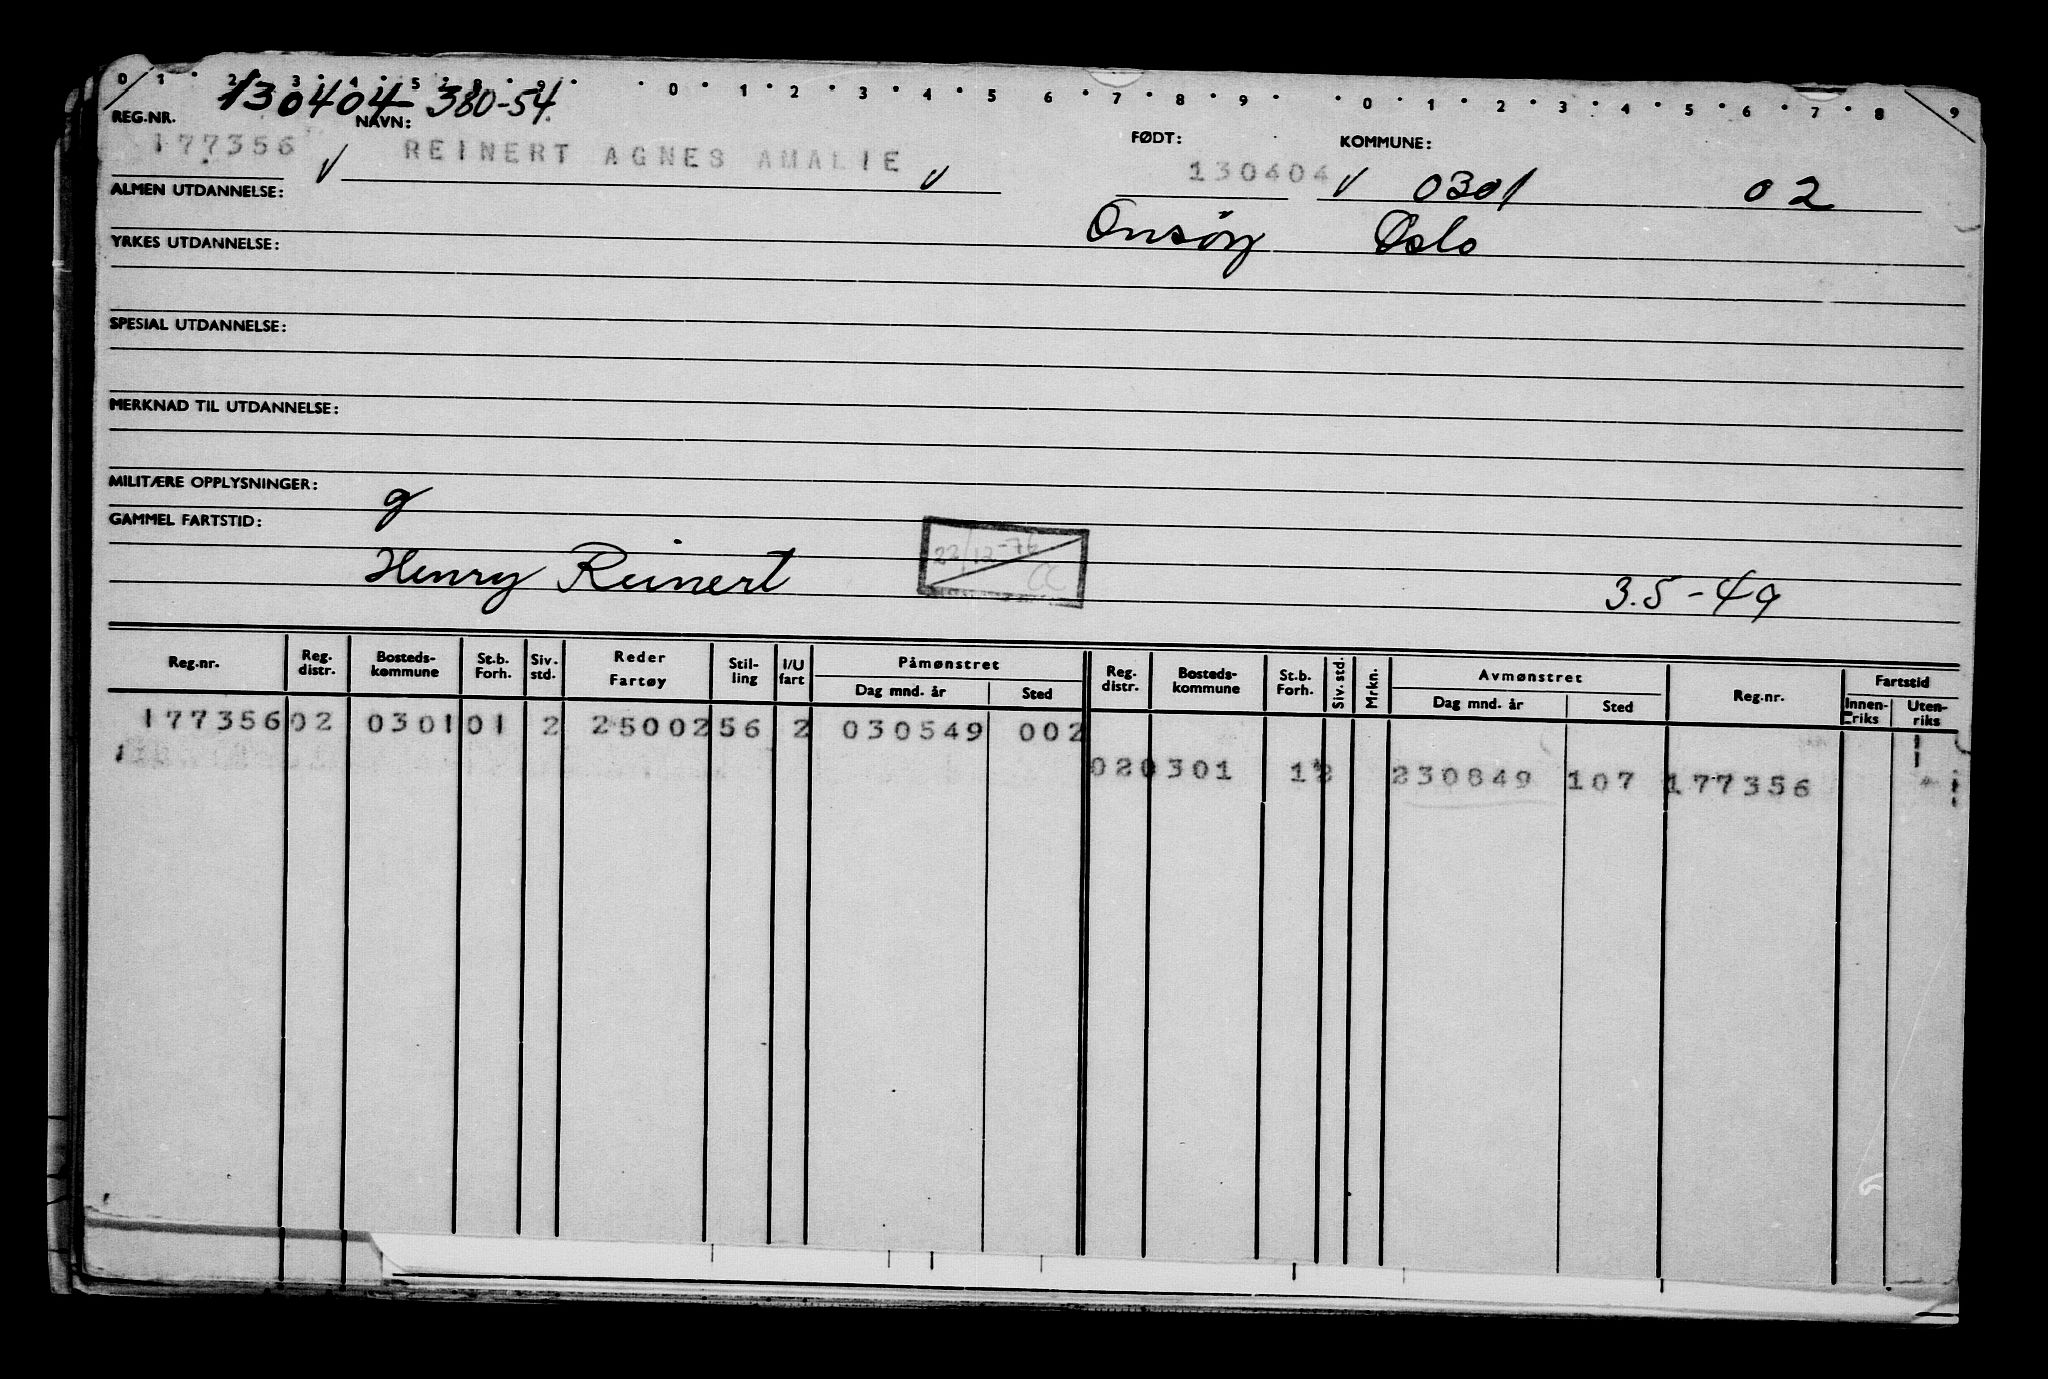 0 1 2 3 4 5 7 8 9 0 1 2 3 4 5 6 7 8 9 0 1 2 3 4 5 6 7 8 9
130404 380-54
REG.NR. NAVN: FØDT: KOMMUNE:
177356 REINERT AGNES AMALIE 130404 0301 02
ALMEN UTDANNELSE: Onsøy Oslo
YRKES UTDANNELSE:
SPESIAL UTDANNELSE:
MERKNAD TIL UTDANNELSE:
MILITÆRE OPPLYSNINGER: g
GAMMEL FARTSTID:
22/12-76 CC
Henry Reinert 3.5-49
Reg.nr. Reg. distr. Bosteds- kommune St.b. Forh. Siv. std. Reder Fartøy Stil- ling I/U fart Påmønstret Dag mnd. år Sted Reg. distr. Bosteds- kommune St.b. Forh. Siv. std. Mrkn. Avmønstret Dag mnd. år Sted Reg.nr. Fartstid Innen- riks Uten- riks
177356 02 0301 01 2 25002 56 2 030549 002
02 0301 1 2 230849 107 177356